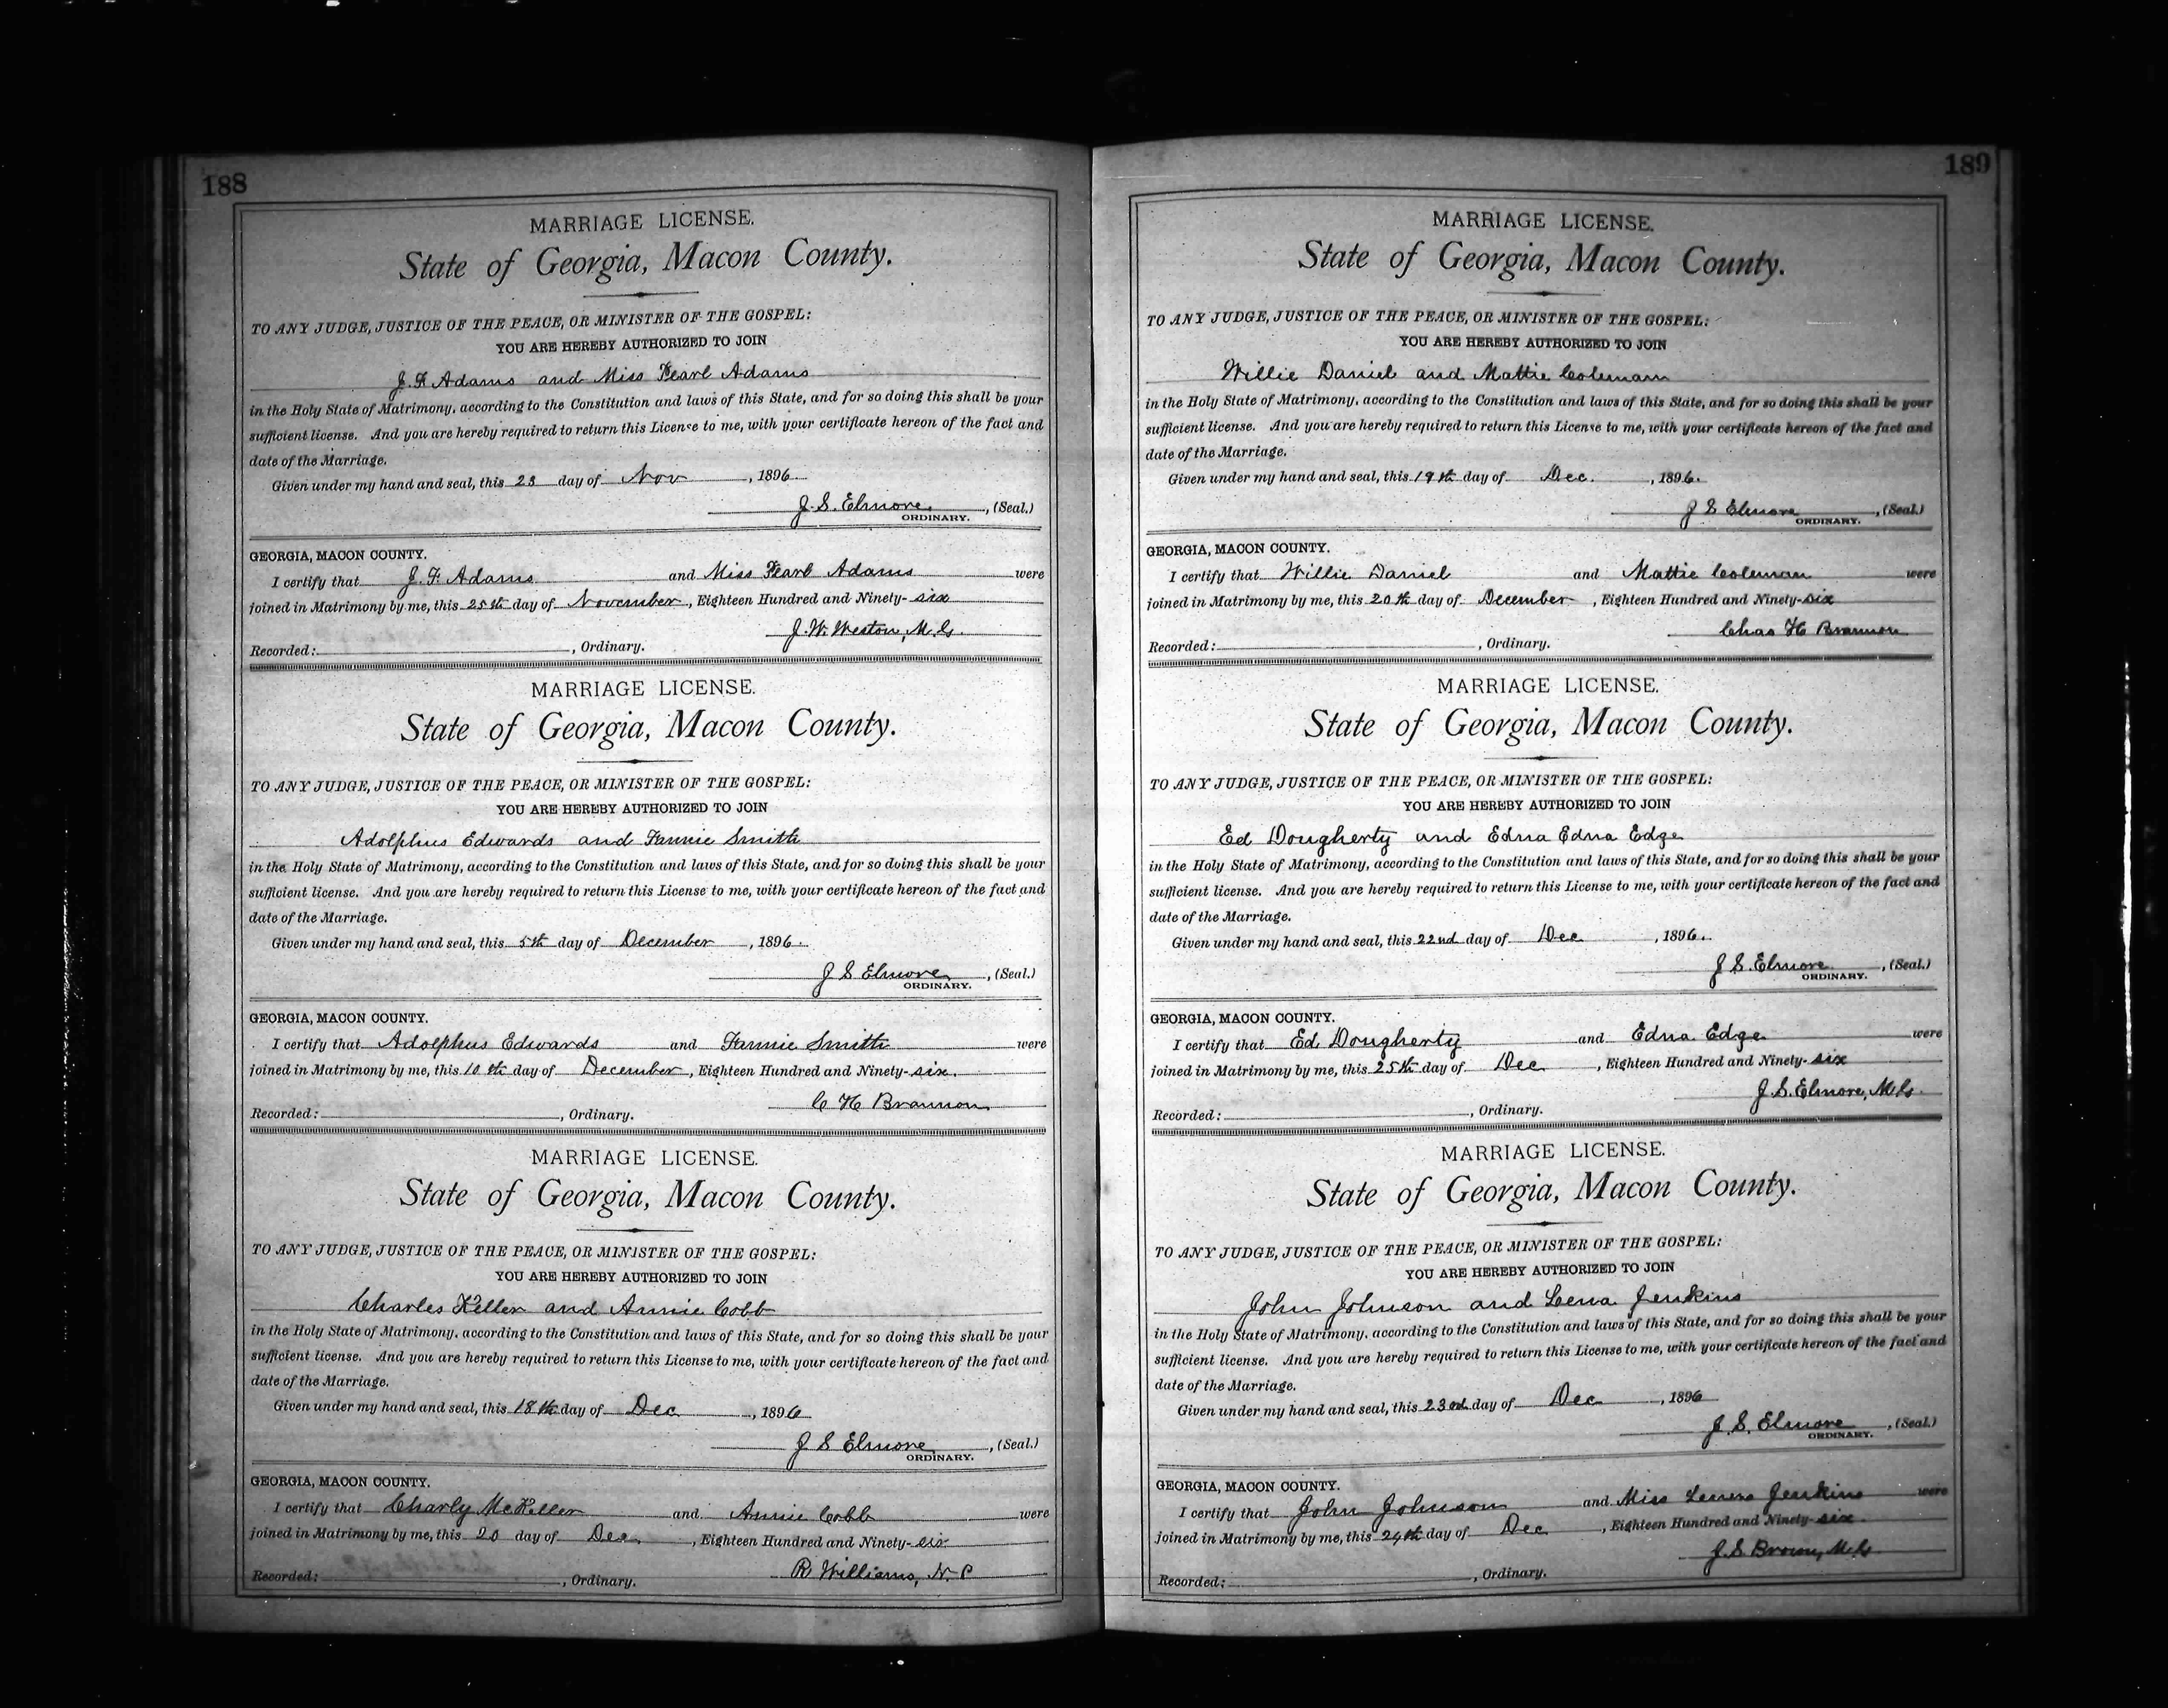 188
MARRIAGE LICENSE.
State of Georgia, Macon County.
TO ANY JUDGE, JUSTICE OF THE PEACE, OR MINISTER OF THE GOSPEL:
YOU ARE HEREBY AUTHORIZED TO JOIN
J. F. Adams and Miss Pearl Adams
in the Holy State of Matrimony, according to the Constitution and laws of this State, and for so doing this shall be your
sufficient license. And you are hereby required to return this License to me, with your certificate hereon of the fact and
date of the Marriage.
Given under my hand and seal, this 23 day of Nov, 1896
J. S. Elmore, (Seal.)
ORDINARY.
GEORGIA, MACON COUNTY.
I certify that J. F. Adams and Miss Pearl Adams were
joined in Matrimony by me, this 25th day of November, Eighteen Hundred and Ninety-six
J. W. Weston, M. G.
Recorded: , Ordinary.
MARRIAGE LICENSE.
State of Georgia, Macon County.
TO ANY JUDGE, JUSTICE OF THE PEACE, OR MINISTER OF THE GOSPEL:
YOU ARE HEREBY AUTHORIZED TO JOIN
Adolphus Edwards and Fannie Smith
in the Holy State of Matrimony, according to the Constitution and laws of this State, and for so doing this shall be your
sufficient license. And you are hereby required to return this License to me, with your certificate hereon of the fact and
date of the Marriage.
Given under my hand and seal, this 5th day of December, 1896
J S Elmore, (Seal.)
ORDINARY.
GEORGIA, MACON COUNTY.
I certify that Adolphus Edwards and Fannie Smith were
joined in Matrimony by me, this 10th day of December, Eighteen Hundred and Ninety-six.
C H Brannon
Recorded: , Ordinary.
MARRIAGE LICENSE.
State of Georgia, Macon County.
TO ANY JUDGE, JUSTICE OF THE PEACE, OR MINISTER OF THE GOSPEL:
YOU ARE HEREBY AUTHORIZED TO JOIN
Charles Keller and Annie Cobb
in the Holy State of Matrimony, according to the Constitution and laws of this State, and for so doing this shall be your
sufficient license. And you are hereby required to return this License to me, with your certificate hereon of the fact and
date of the Marriage.
Given under my hand and seal, this 18th day of Dec, 1896
J S Elmore, (Seal.)
ORDINARY.
GEORGIA, MACON COUNTY.
I certify that Charly McKeller and Annie Cobb were
joined in Matrimony by me, this 20 day of Dec, Eighteen Hundred and Ninety-six
R Williams, N. P
Recorded: , Ordinary.
189
MARRIAGE LICENSE.
State of Georgia, Macon County.
TO ANY JUDGE, JUSTICE OF THE PEACE, OR MINISTER OF THE GOSPEL:
YOU ARE HEREBY AUTHORIZED TO JOIN
Willie Daniel and Mattie Coleman
in the Holy State of Matrimony, according to the Constitution and laws of this State, and for so doing this shall be your
sufficient license. And you are hereby required to return this License to me, with your certificate hereon of the fact and
date of the Marriage.
Given under my hand and seal, this 19th day of Dec., 1896.
J S Elmore, (Seal.)
ORDINARY.
GEORGIA, MACON COUNTY.
I certify that Willie Daniel and Mattie Coleman were
joined in Matrimony by me, this 20th day of December, Eighteen Hundred and Ninety-six
Chas H Brannon
Recorded: , Ordinary.
MARRIAGE LICENSE.
State of Georgia, Macon County.
TO ANY JUDGE, JUSTICE OF THE PEACE, OR MINISTER OF THE GOSPEL:
YOU ARE HEREBY AUTHORIZED TO JOIN
Ed Dougherty and Edna Edna Edge
in the Holy State of Matrimony, according to the Constitution and laws of this State, and for so doing this shall be your
sufficient license. And you are hereby required to return this License to me, with your certificate hereon of the fact and
date of the Marriage.
Given under my hand and seal, this 22nd day of Dec, 1896.
J. S. Elmore, (Seal.)
ORDINARY.
GEORGIA, MACON COUNTY.
I certify that Ed Dougherty and Edna Edge were
joined in Matrimony by me, this 25th day of Dec, Eighteen Hundred and Ninety-six
J. S. Elmore, M G.
Recorded: , Ordinary.
MARRIAGE LICENSE.
State of Georgia, Macon County.
TO ANY JUDGE, JUSTICE OF THE PEACE, OR MINISTER OF THE GOSPEL:
YOU ARE HEREBY AUTHORIZED TO JOIN
John Johnson and Lena Jenkins
in the Holy State of Matrimony, according to the Constitution and laws of this State, and for so doing this shall be your
sufficient license. And you are hereby required to return this License to me, with your certificate hereon of the fact and
date of the Marriage.
Given under my hand and seal, this 23rd day of Dec, 1896
J. S. Elmore, (Seal.)
ORDINARY.
GEORGIA, MACON COUNTY.
I certify that John Johnson and Miss Jenkins were
joined in Matrimony by me, this 24th day of Dec, Eighteen Hundred and Ninety-six
J. S. Brown, M. G
Recorded: , Ordinary.